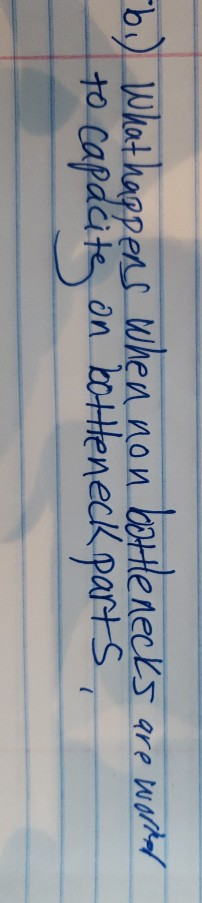 b.) What happens when non bottlenecks are worked
to capacity on bottleneck parts.